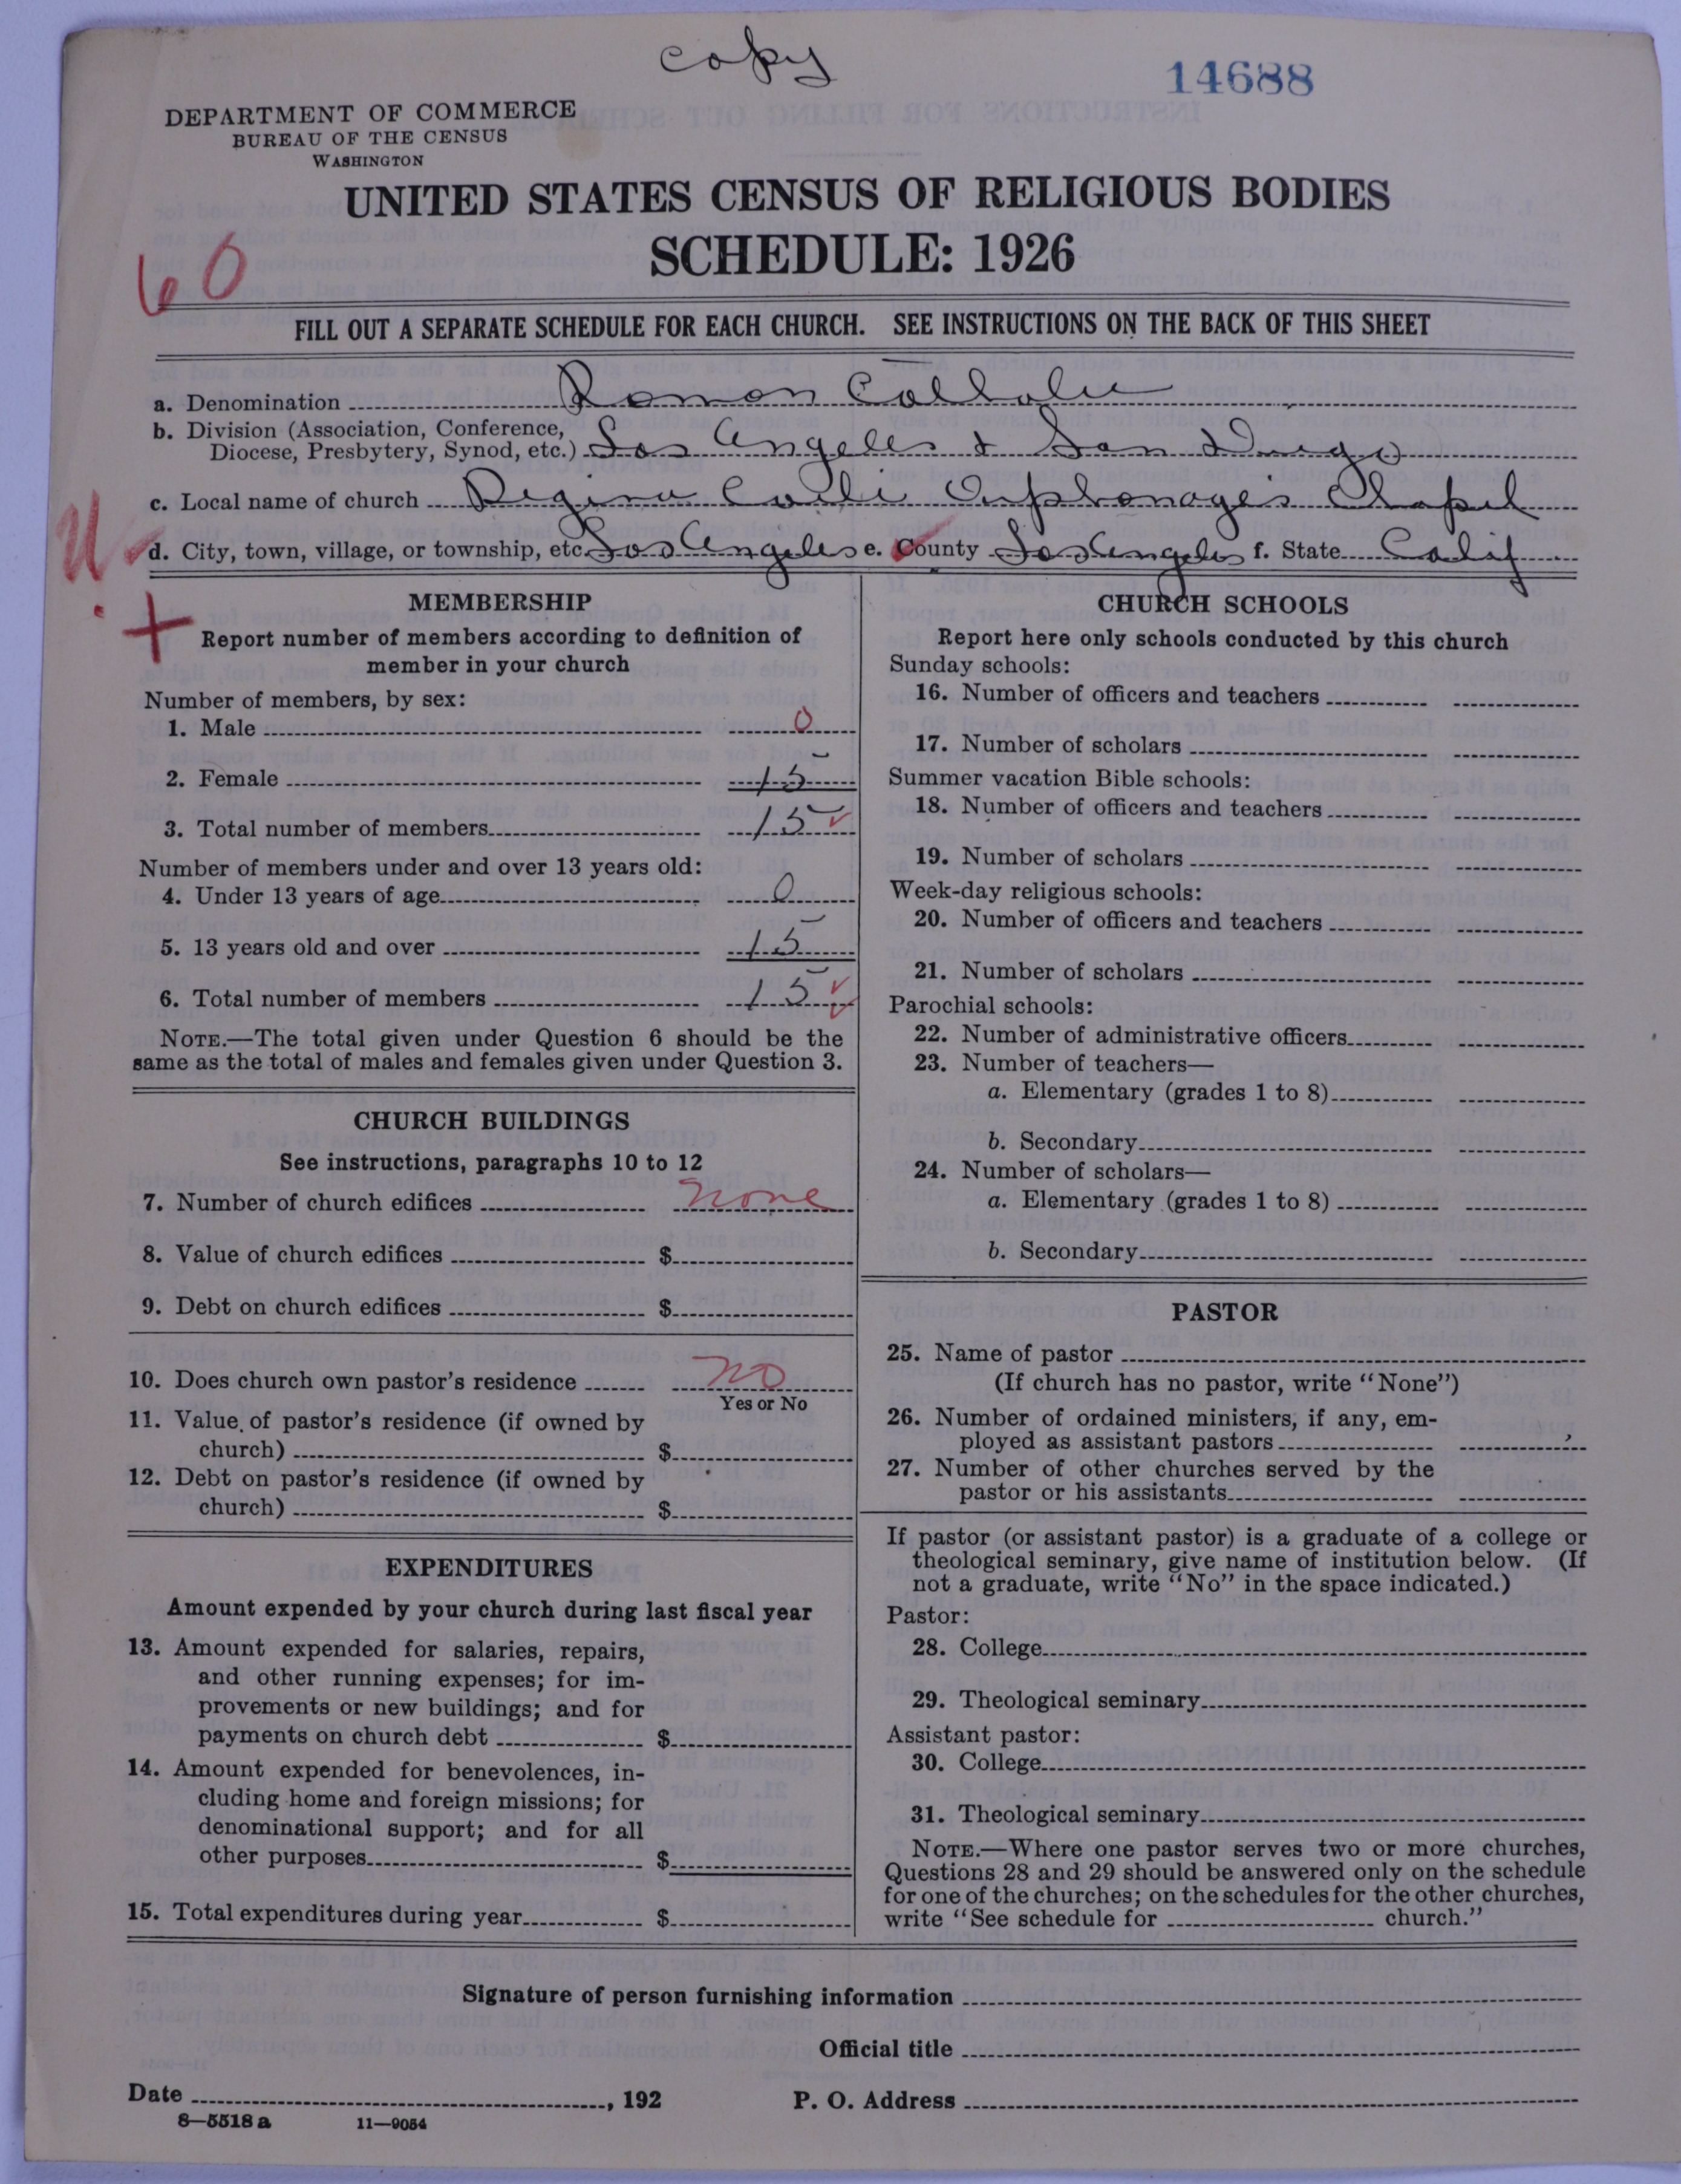 copy
14688
DEPARTMENT OF COMMERCE
BUREAU OF THE CENSUS
WASHINGTON
UNITED STATES CENSUS OF RELIGIOUS BODIES
SCHEDULE: 1926
60
FILL OUT A SEPARATE SCHEDULE FOR EACH CHURCH. SEE INSTRUCTIONS ON THE BACK OF THIS SHEET
a. Denomination Roman Catholic
b. Division (Association, Conference,
Diocese, Presbytery, Synod, etc.) Los Angeles & San Diego
c. Local name of church Regina Coeli Orphanage's Chapel
d. City, town, village, or township, etc. Los Angeles e. County Los Angeles f. State Calif
MEMBERSHIP
Report number of members according to definition of
member in your church
Number of members, by sex:
1. Male 0
2. Female 15
3. Total number of members 15
Number of members under and over 13 years old:
4. Under 13 years of age 0
5. 13 years old and over 15
6. Total number of members 15
NOTE.—The total given under Question 6 should be the
same as the total of males and females given under Question 3.
CHURCH BUILDINGS
See instructions, paragraphs 10 to 12
7. Number of church edifices none
8. Value of church edifices $
9. Debt on church edifices $
10. Does church own pastor's residence no
Yes or No
11. Value of pastor's residence (if owned by
church) $
12. Debt on pastor's residence (if owned by
church) $
EXPENDITURES
Amount expended by your church during last fiscal year
13. Amount expended for salaries, repairs,
and other running expenses; for im-
provements or new buildings; and for
payments on church debt $
14. Amount expended for benevolences, in-
cluding home and foreign missions; for
denominational support; and for all
other purposes $
15. Total expenditures during year $
CHURCH SCHOOLS
Report here only schools conducted by this church
Sunday schools:
16. Number of officers and teachers
17. Number of scholars
Summer vacation Bible schools:
18. Number of officers and teachers
19. Number of scholars
Week-day religious schools:
20. Number of officers and teachers
21. Number of scholars
Parochial schools:
22. Number of administrative officers
23. Number of teachers—
a. Elementary (grades 1 to 8)
b. Secondary
24. Number of scholars—
a. Elementary (grades 1 to 8)
b. Secondary
PASTOR
25. Name of pastor
(If church has no pastor, write "None")
26. Number of ordained ministers, if any, em-
ployed as assistant pastors
27. Number of other churches served by the
pastor or his assistants
If pastor (or assistant pastor) is a graduate of a college or
theological seminary, give name of institution below. (If
not a graduate, write "No" in the space indicated.)
Pastor:
28. College
29. Theological seminary
Assistant pastor:
30. College
31. Theological seminary
NOTE.—Where one pastor serves two or more churches,
Questions 28 and 29 should be answered only on the schedule
for one of the churches; on the schedules for the other churches,
write "See schedule for church."
Signature of person furnishing information
Official title
Date , 192
P. O. Address
8—5518 a 11—9054